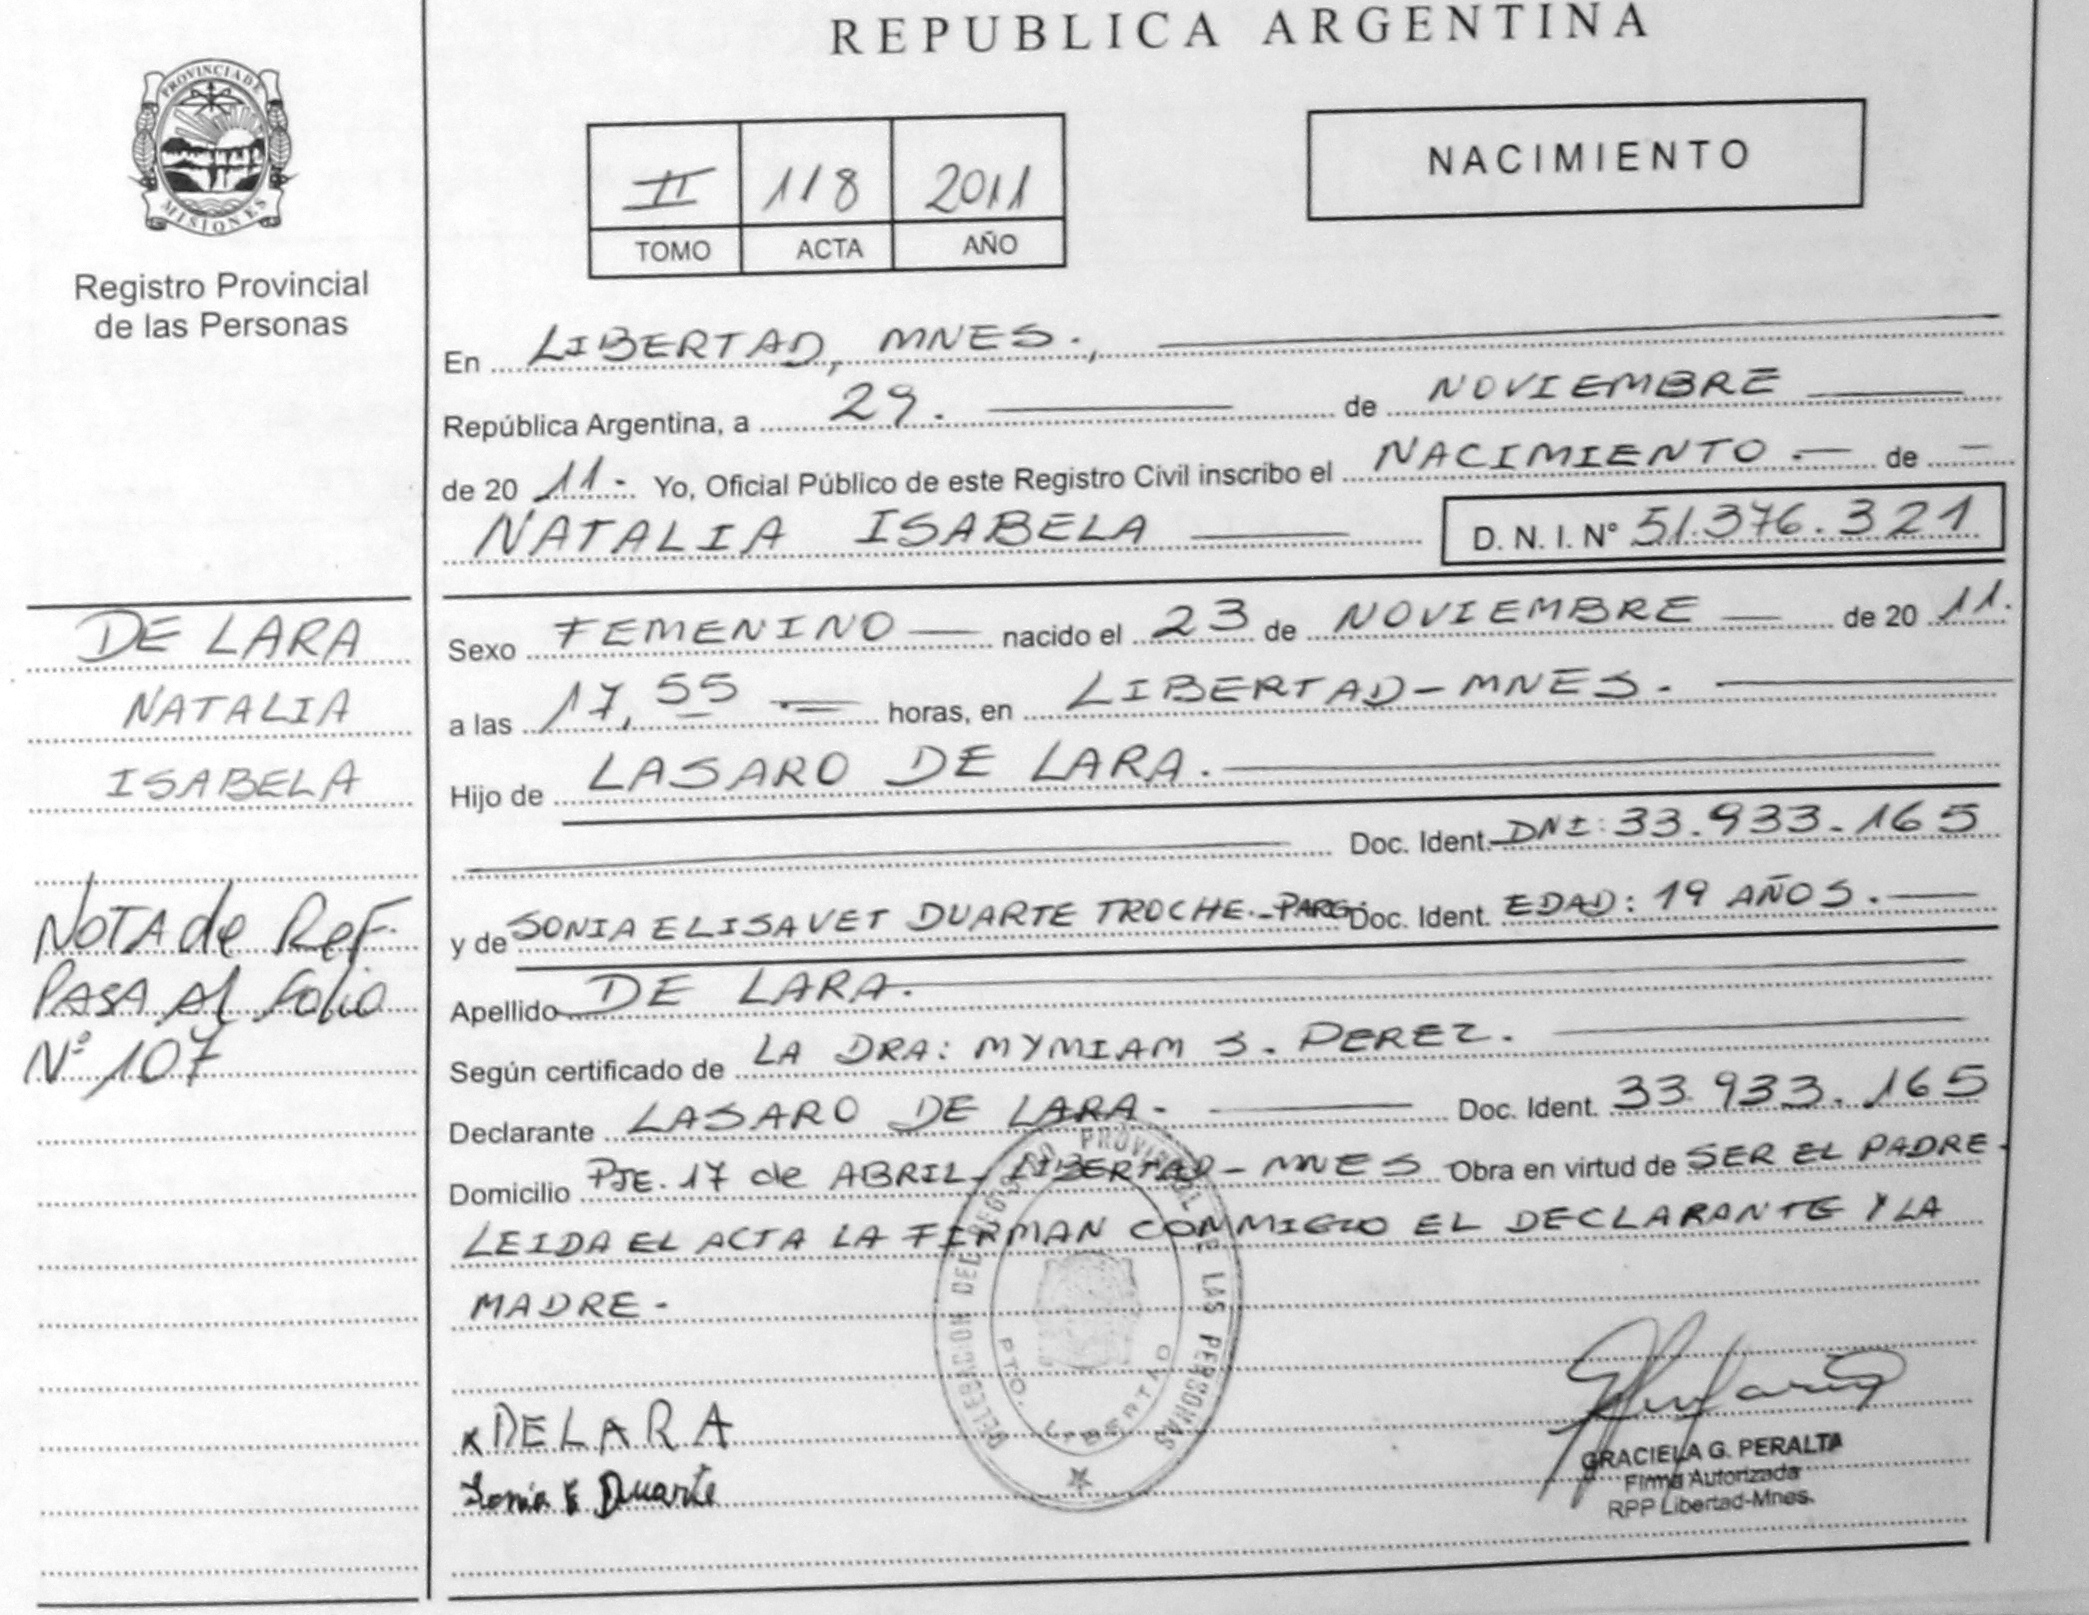 REPUBLICA ARGENTINA
PROVINCIA DE
MISIONES
Registro Provincial
de las Personas
II 118 2011
TOMO ACTA AÑO
NACIMIENTO
En LIBERTAD, MNES.,
República Argentina, a 29. de NOVIEMBRE
de 20 11- Yo, Oficial Público de este Registro Civil inscribo el NACIMIENTO.— de —
NATALIA ISABELA D. N. I. Nº 51.376.321
DE LARA
NATALIA
ISABELA
NOTA de Ref.
PASA Al folio
Nº 107
Sexo FEMENINO — nacido el 23 de NOVIEMBRE — de 20 11.
a las 17,55 horas, en LIBERTAD-MNES.
Hijo de LASARO DE LARA.
Doc. Ident. DNI: 33.933.165
y de SONIA ELISAVET DUARTE TROCHE.-PARG. Doc. Ident. EDAD: 19 AÑOS.
Apellido DE LARA.
Según certificado de LA DRA: MYMIAM S. PEREZ.
Declarante LASARO DE LARA- Doc. Ident. 33.933.165
Domicilio PJE. 17 de ABRIL-LIBERTAD-MNES Obra en virtud de SER EL PADRE-
LEIDA EL ACTA LA FIRMAN COMMIGO EL DECLARANTE Y LA
MADRE-
DELEGACION DEL REGISTRO PROVINCIAL DE LAS PERSONAS
PTO. LIBERTAD
x DE LARA
Sonia E Duarte
GRACIELA G. PERALTA
Firma Autorizada
RPP Libertad-Mnes.